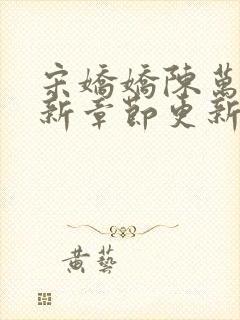 宋嬌嬌陳萬
新章節更新
黃藝